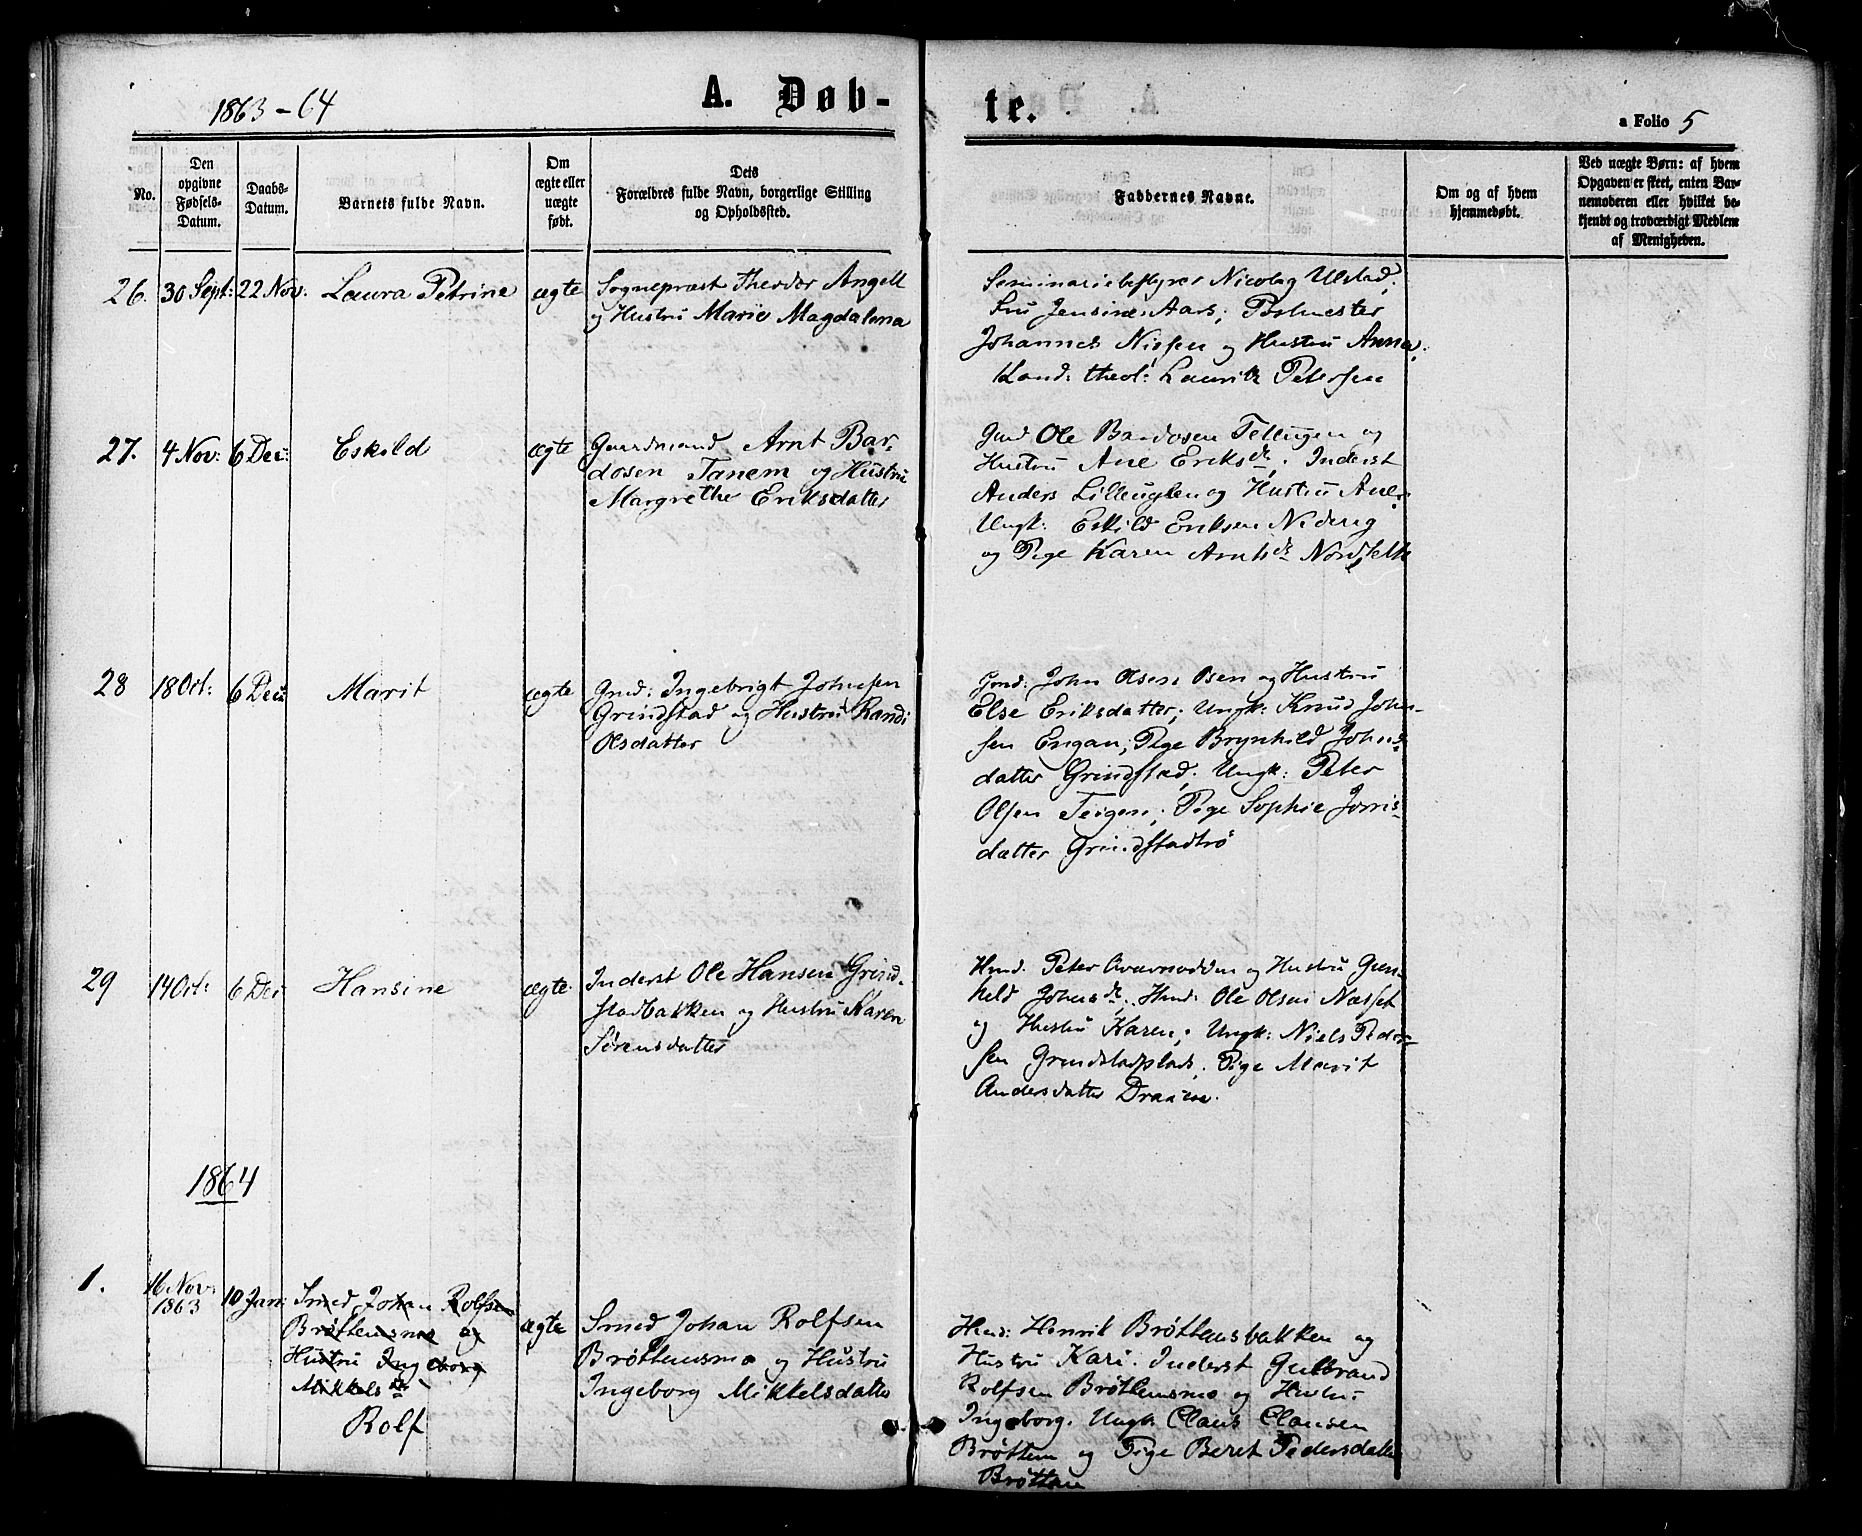 1863-64
A. Døb-
te.
a Folio 5
No.
Den opgivne Fødsels-Datum.
Daabs-Datum.
Barnets fulde Navn.
Om ægte eller uægte født.
Dets Forældres fulde Navn, borgerlige Stilling og Opholdssted.
Faddernes Navne.
Om og af hvem hjemmedøbt.
Ved uægte Børn: af hvem Opgaven er skeet, enten Barnemoderen eller hvilket bekjendt og troværdigt Medlem af Menigheden.
26. 30 Sept: 22 Nov: Laura Petrine ægte
Sognepræst Theodor Angell
og Hustru Marie Magdalena
Seminariebestyrer Nicolay Ulstad,
Fru Jensine Aars; Postmester
Johannes Nissen og Hustru Anna,
Kand: theol: Laurik Petersen
27. 4 Nov: 6 Dec: Eskild ægte
Gaardmand Arnt Bar-
dosen Tanem og Hustru
Margrethe Eriksdatter
Gmd Ole Bardosen Tellugen og
Hustru Ane Eriksdr; Inderst
Anders Lilleuglen og Hustru Ane,
Ungk: Eskild Eriksen
og Pige Karen Arntsdr
28 18 Oct: 6 Dec: Marit ægte
Gmd: Ingebrigt Johnsen
Grindstad og Hustru Randi
Olsdatter
Gmd: John Olsen Osen og Hustru
Else Eriksdatter; Ungk: Knud John-
sen Engan; Pige Brynhild Johns-
datter Grindstad; Ungk: Peter
Olsen Teigen; Pige Sophie Jonis-
datter Grindstadtrø
29 14 Oct: 6 Dec Hansine ægte
Inderst Ole Hansen Grind-
stadbakken og Hustru Karen
Sørensdatter
Hmd. Peter og Hustru Gun-
hild Johnsdr. Hmd: Ole Olsen Næsset
og Hustru Karen; Ungk: Niels Peder-
sen Grindstadplads; Pige Marit
Andersdatter Draxten.
1864
1. 16 Nov: 1863 10 Jan: Smed Johan Rolfsen
Brøttemsmo og
Hustru Ingeborg
Mikkelsdr
Rolf
ægte
Smed Johan Rolfsen
Brøttemsmo og Hustru
Ingeborg Mikkelsdatter
Hmd: Henrik Brøttemsbakken og
Hustru Kari. Inderst Gulbrand
Rolfsen Brøttemsmo og Hustru
Ingeborg. Ungk: Claus Clausen
Brøttem og Pige Beret Pedersdatter
Brøttem